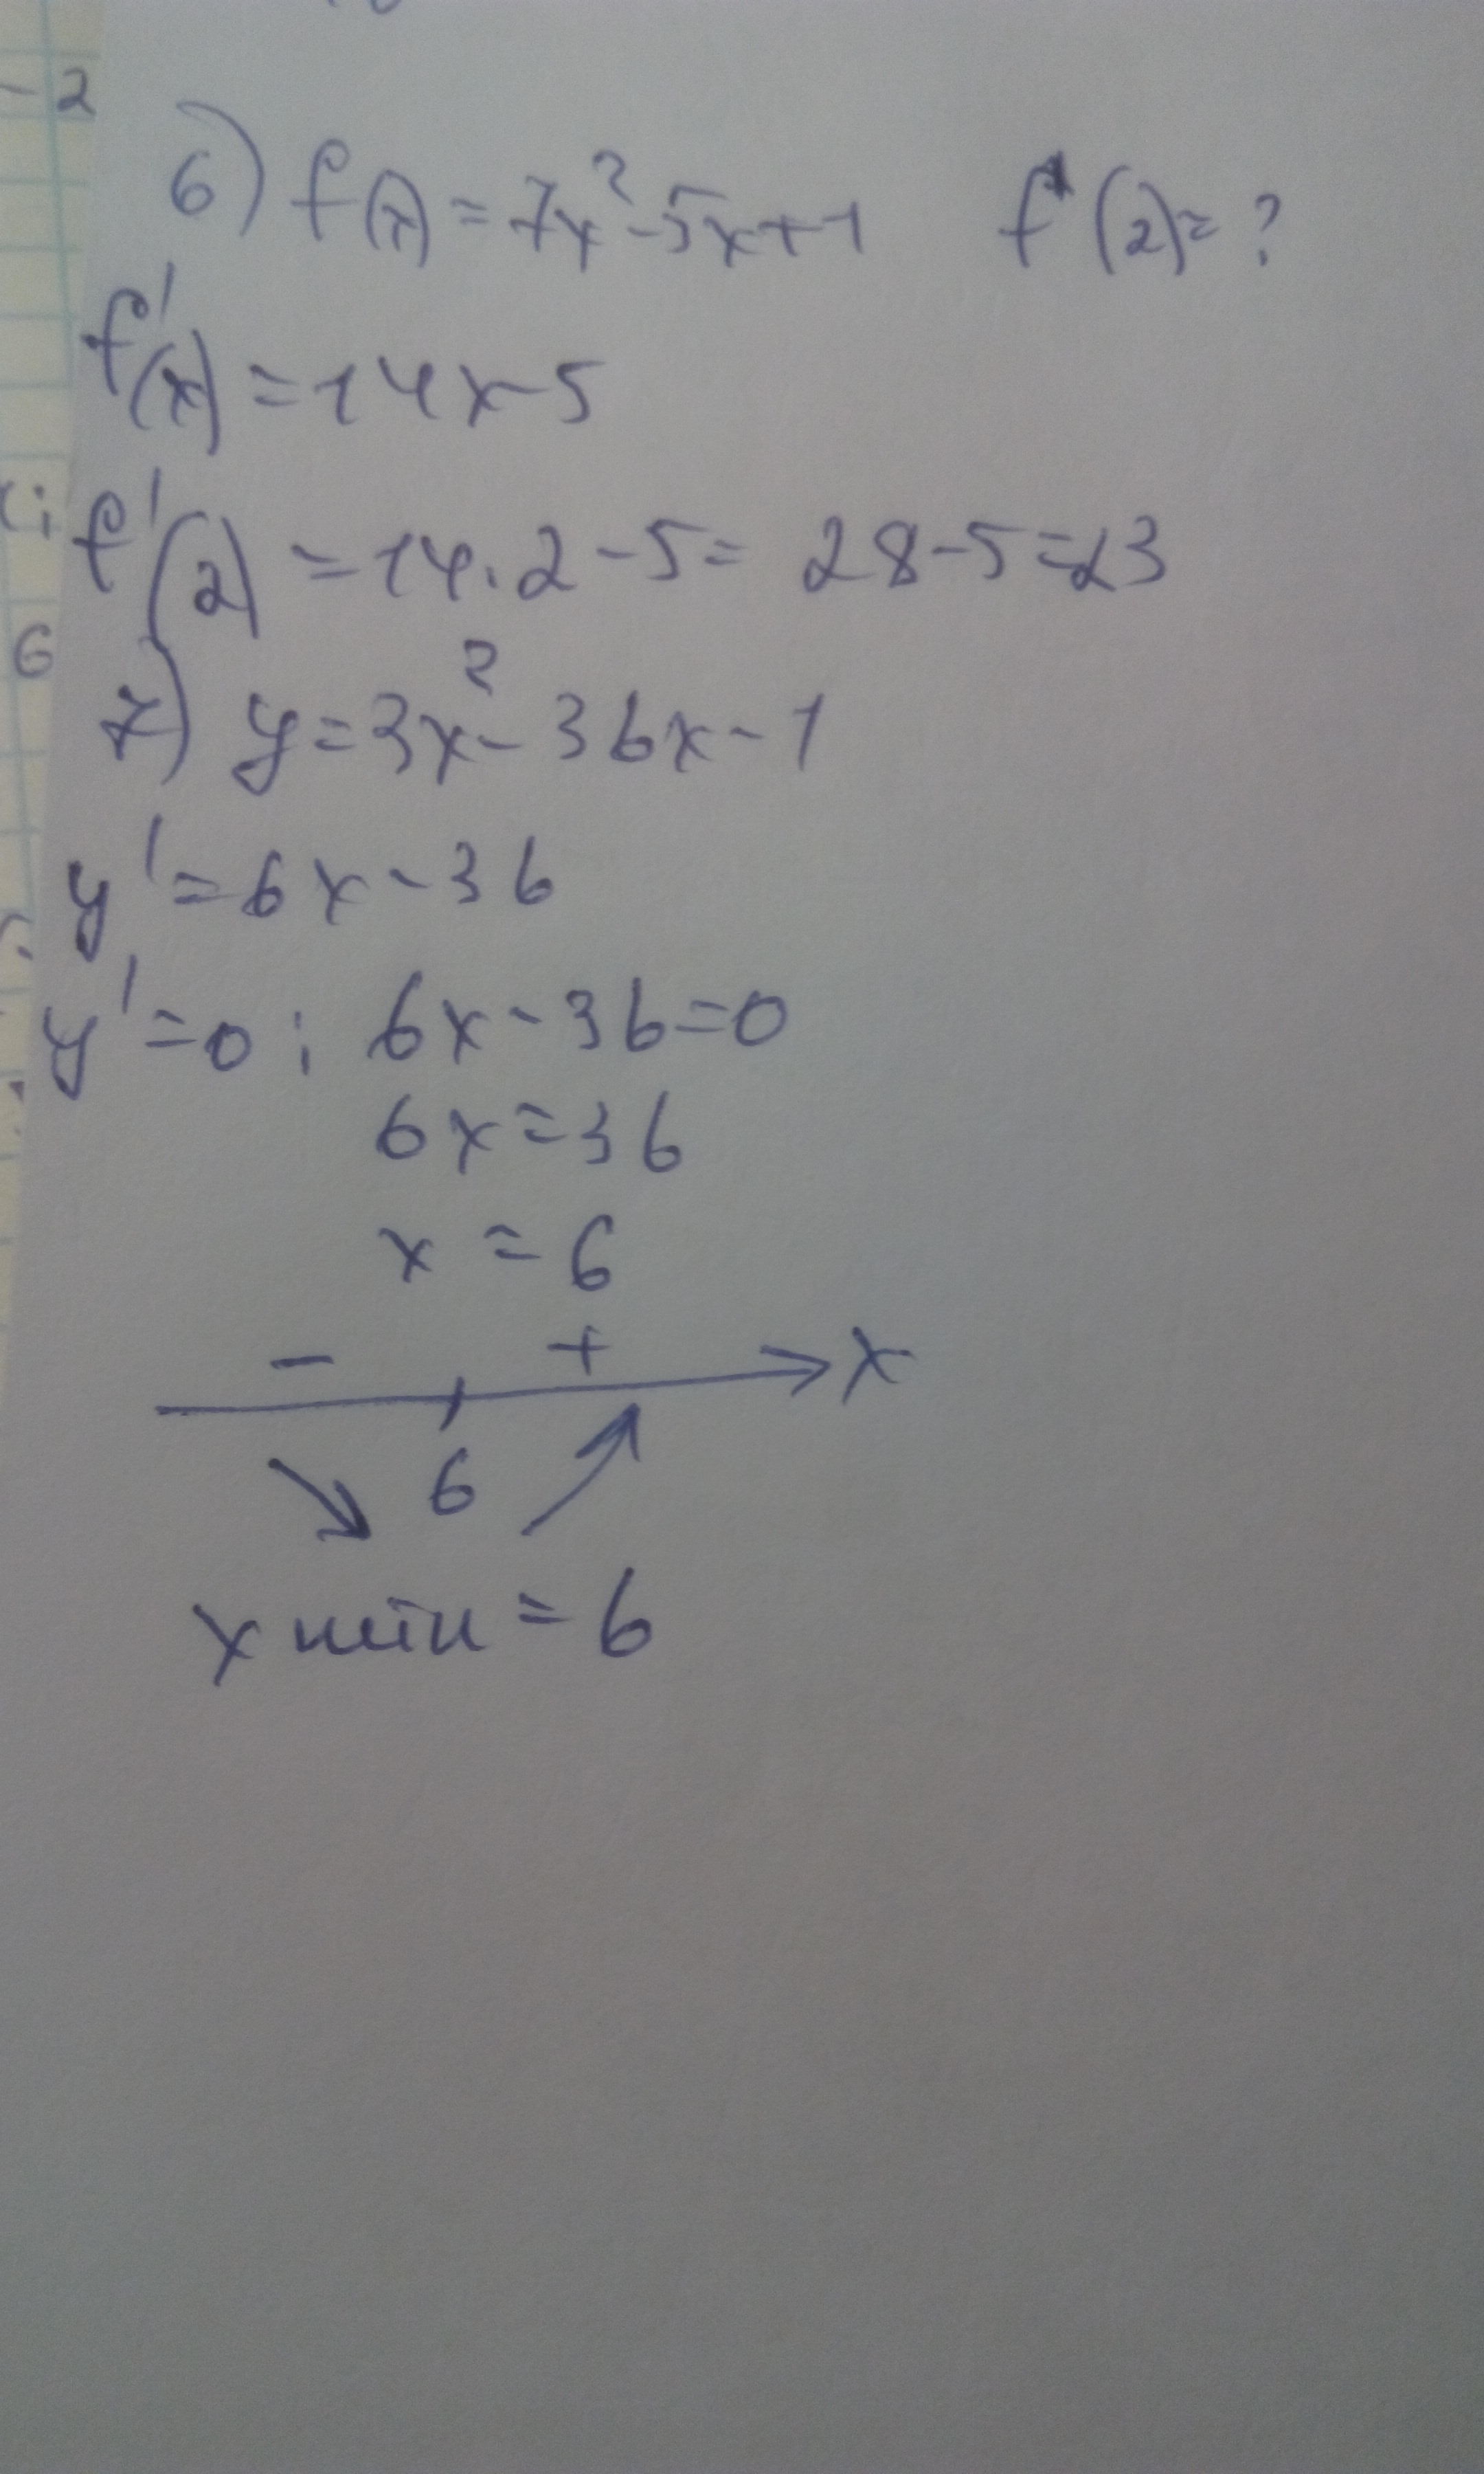 -2
6) f(x) = 7x² - 5x + 1 f'(2) = ?
f'(x) = 14x - 5
f'(2) = 14 · 2 - 5 = 28 - 5 = 23
6
7) y = 3x² - 36x - 1
y' = 6x - 36
y' = 0 ; 6x - 36 = 0
6x = 36
x = 6
- + x
6
x min = 6